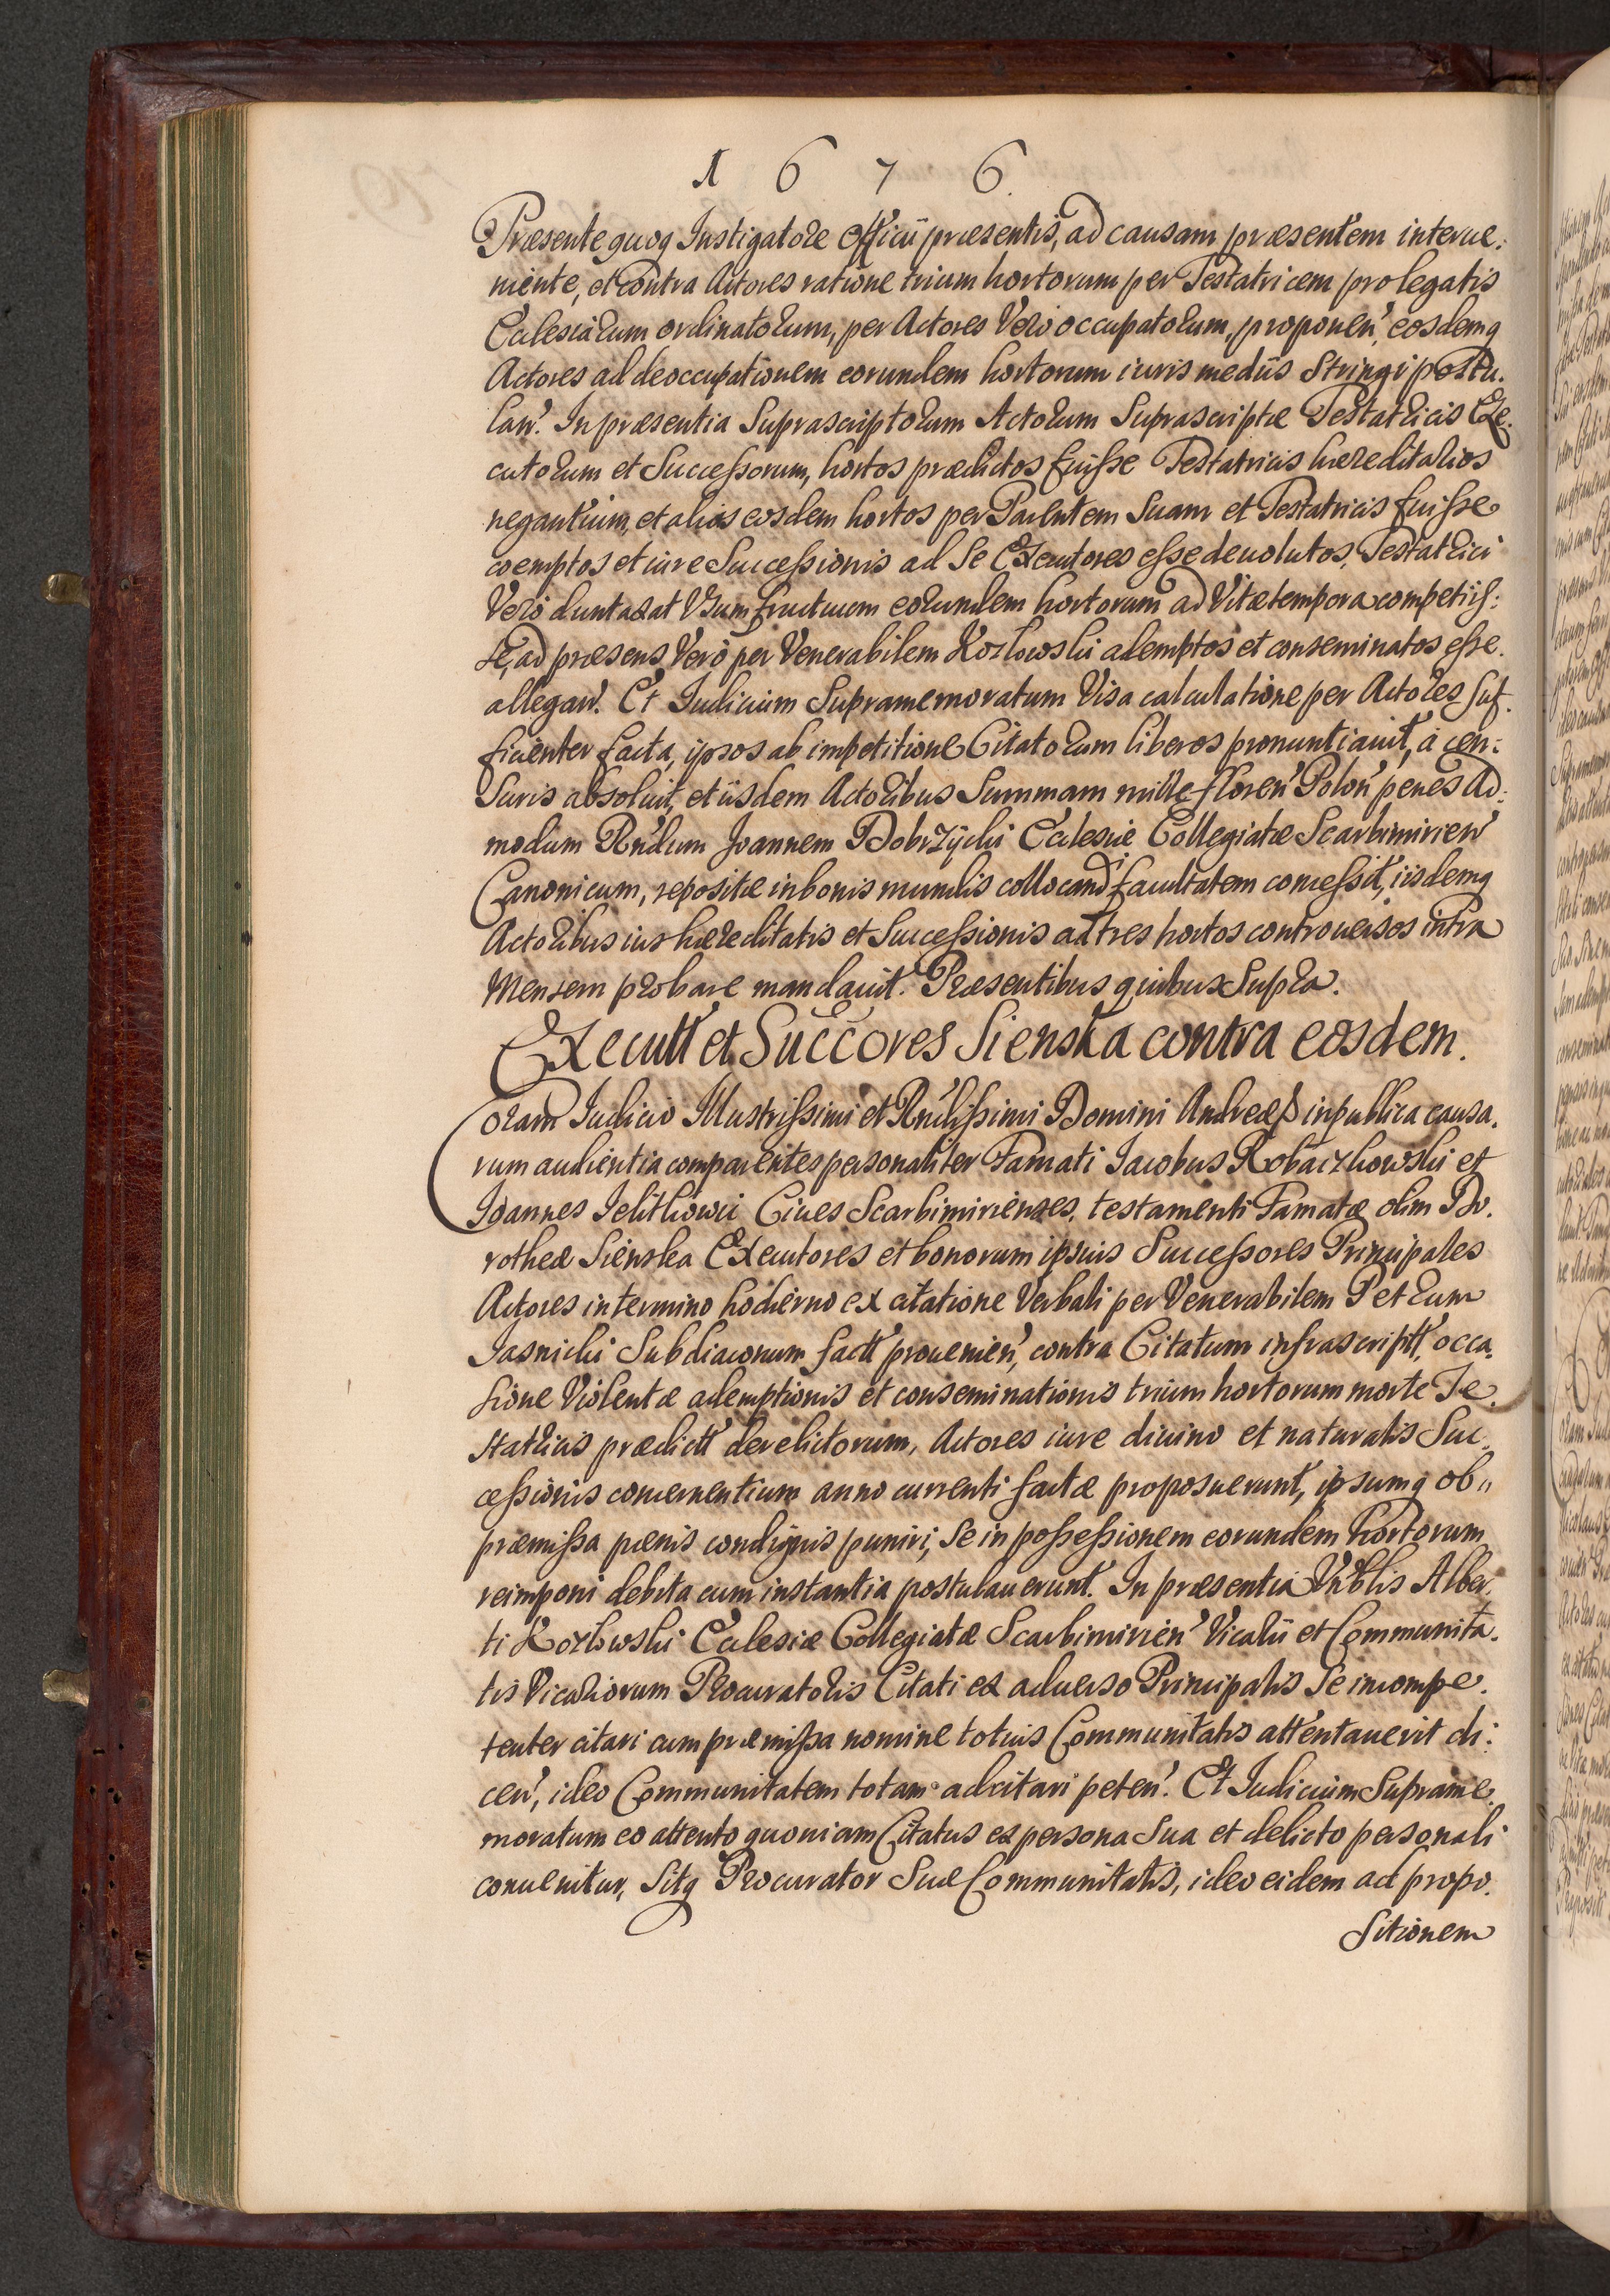 1 6 7 6.
Præsente quoq Instigatore Officii præsentis, ad causam præsentem interue:
niente, et contra Actores ratione trium hortorum per Testatricem pro legatis
Ecclesiarum ordinatorum, per Actores Vero occupatorum, proponen', eosdemq
Actores ad deoccupationem eorundem hortorum iuris mediis Stringi postu.
lan'. In præsentia Suprascriptorum Actorum Suprascriptæ Testatricis Exe.
cutorum et Successorum, hortos prædictos fuisse Testatricis hæreditarios
negantium, et alias eosdem hortos per Parentem Suam et Testatricis fuisse
coemptos et iure Successionis ad Se Executores esse deuolutos, Testatrici
Verò duntaxat Vsumfructuum eorundem hortorum ad Vitæ tempora competiis:
se, ad præsens Verò per Venerabilem Kozłowski ademptos et conseminatos esse.
allegan'. Et Iudicium Supramemoratum Visa calculatione per Actores suf.
ficienter facta, ipsos ab impetitione Citatorum liberos pronuntiauit, à cen:
Suris absoluit, et iisdem Actoribus Summam mille floren' Polon' penes Ad:
modum Rndum Joannem Dobrzycki Ecclesiæ Collegiatæ Scarbimirien'
Canonicum, repositæ in bonis mundis collocandi facultatem concessit, iisdemq
Actoribus ius hæreditatis et Successionis ad tres hortos controuersos intra
Mensem probare mandauit. Præsentibus quibus Supra.
Executt et Succores Sienska contra eosdem.
Coram Iudicio Illustrissimi et Rndissimi Domini Andreæ in publica causa.
rum audientia comparentes personaliter Famati Iacobus Robaczkowski et
Joannes Ielitkowic Ciues Scarbimirienses, testamenti Famatæ olim Do.
rotheæ Sienska Executores et bonorum ipsius Successores Principales
Actores in termino hodierno ex citatione Verbali per Venerabilem Petrum
Iasnicki Subdiaconum factt prouenien', contra Citatum infrascriptt, occa.
sione Violentæ ademptionis et conseminationis trium hortorum morte Te.
statricis prædictt derelictorum, Actores iure diuino et naturalis Suc.
cessionis concernentium anno currenti factæ proposuerunt, ipsumq ob
præmissa pænis condignis puniri, Se in possessionem eorundem hortorum
reimponi debita cum instantia postulauerunt. In præsentia Vnblis Alber.
ti Kozłowski Ecclesiæ Collegiatæ Scarbimirien' Vicarii et Communita.
tis Vicariorum Procuratoris Citati ex aduerso Principalis Se incompe.
tenter citari cum præmissa nomine totius Communitatis attentauerit di:
cen', ideo Communitatem totam adcitari peten'. Et Iudicium Suprame.
moratum eo attento quoniam Citatus ex persona Sua et delicto personali
conuenitur, Sitq Procurator Suæ Communitatis, ideo eidem ad propo.
sitionem